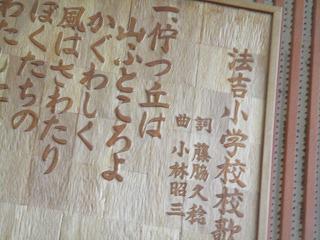 法吉小学校校歌
詞 藤脇久稔
曲 小林昭三
一、佇つ丘は
山ふところよ
かぐわしく
風はさわたり
ぼくたちの
わたし